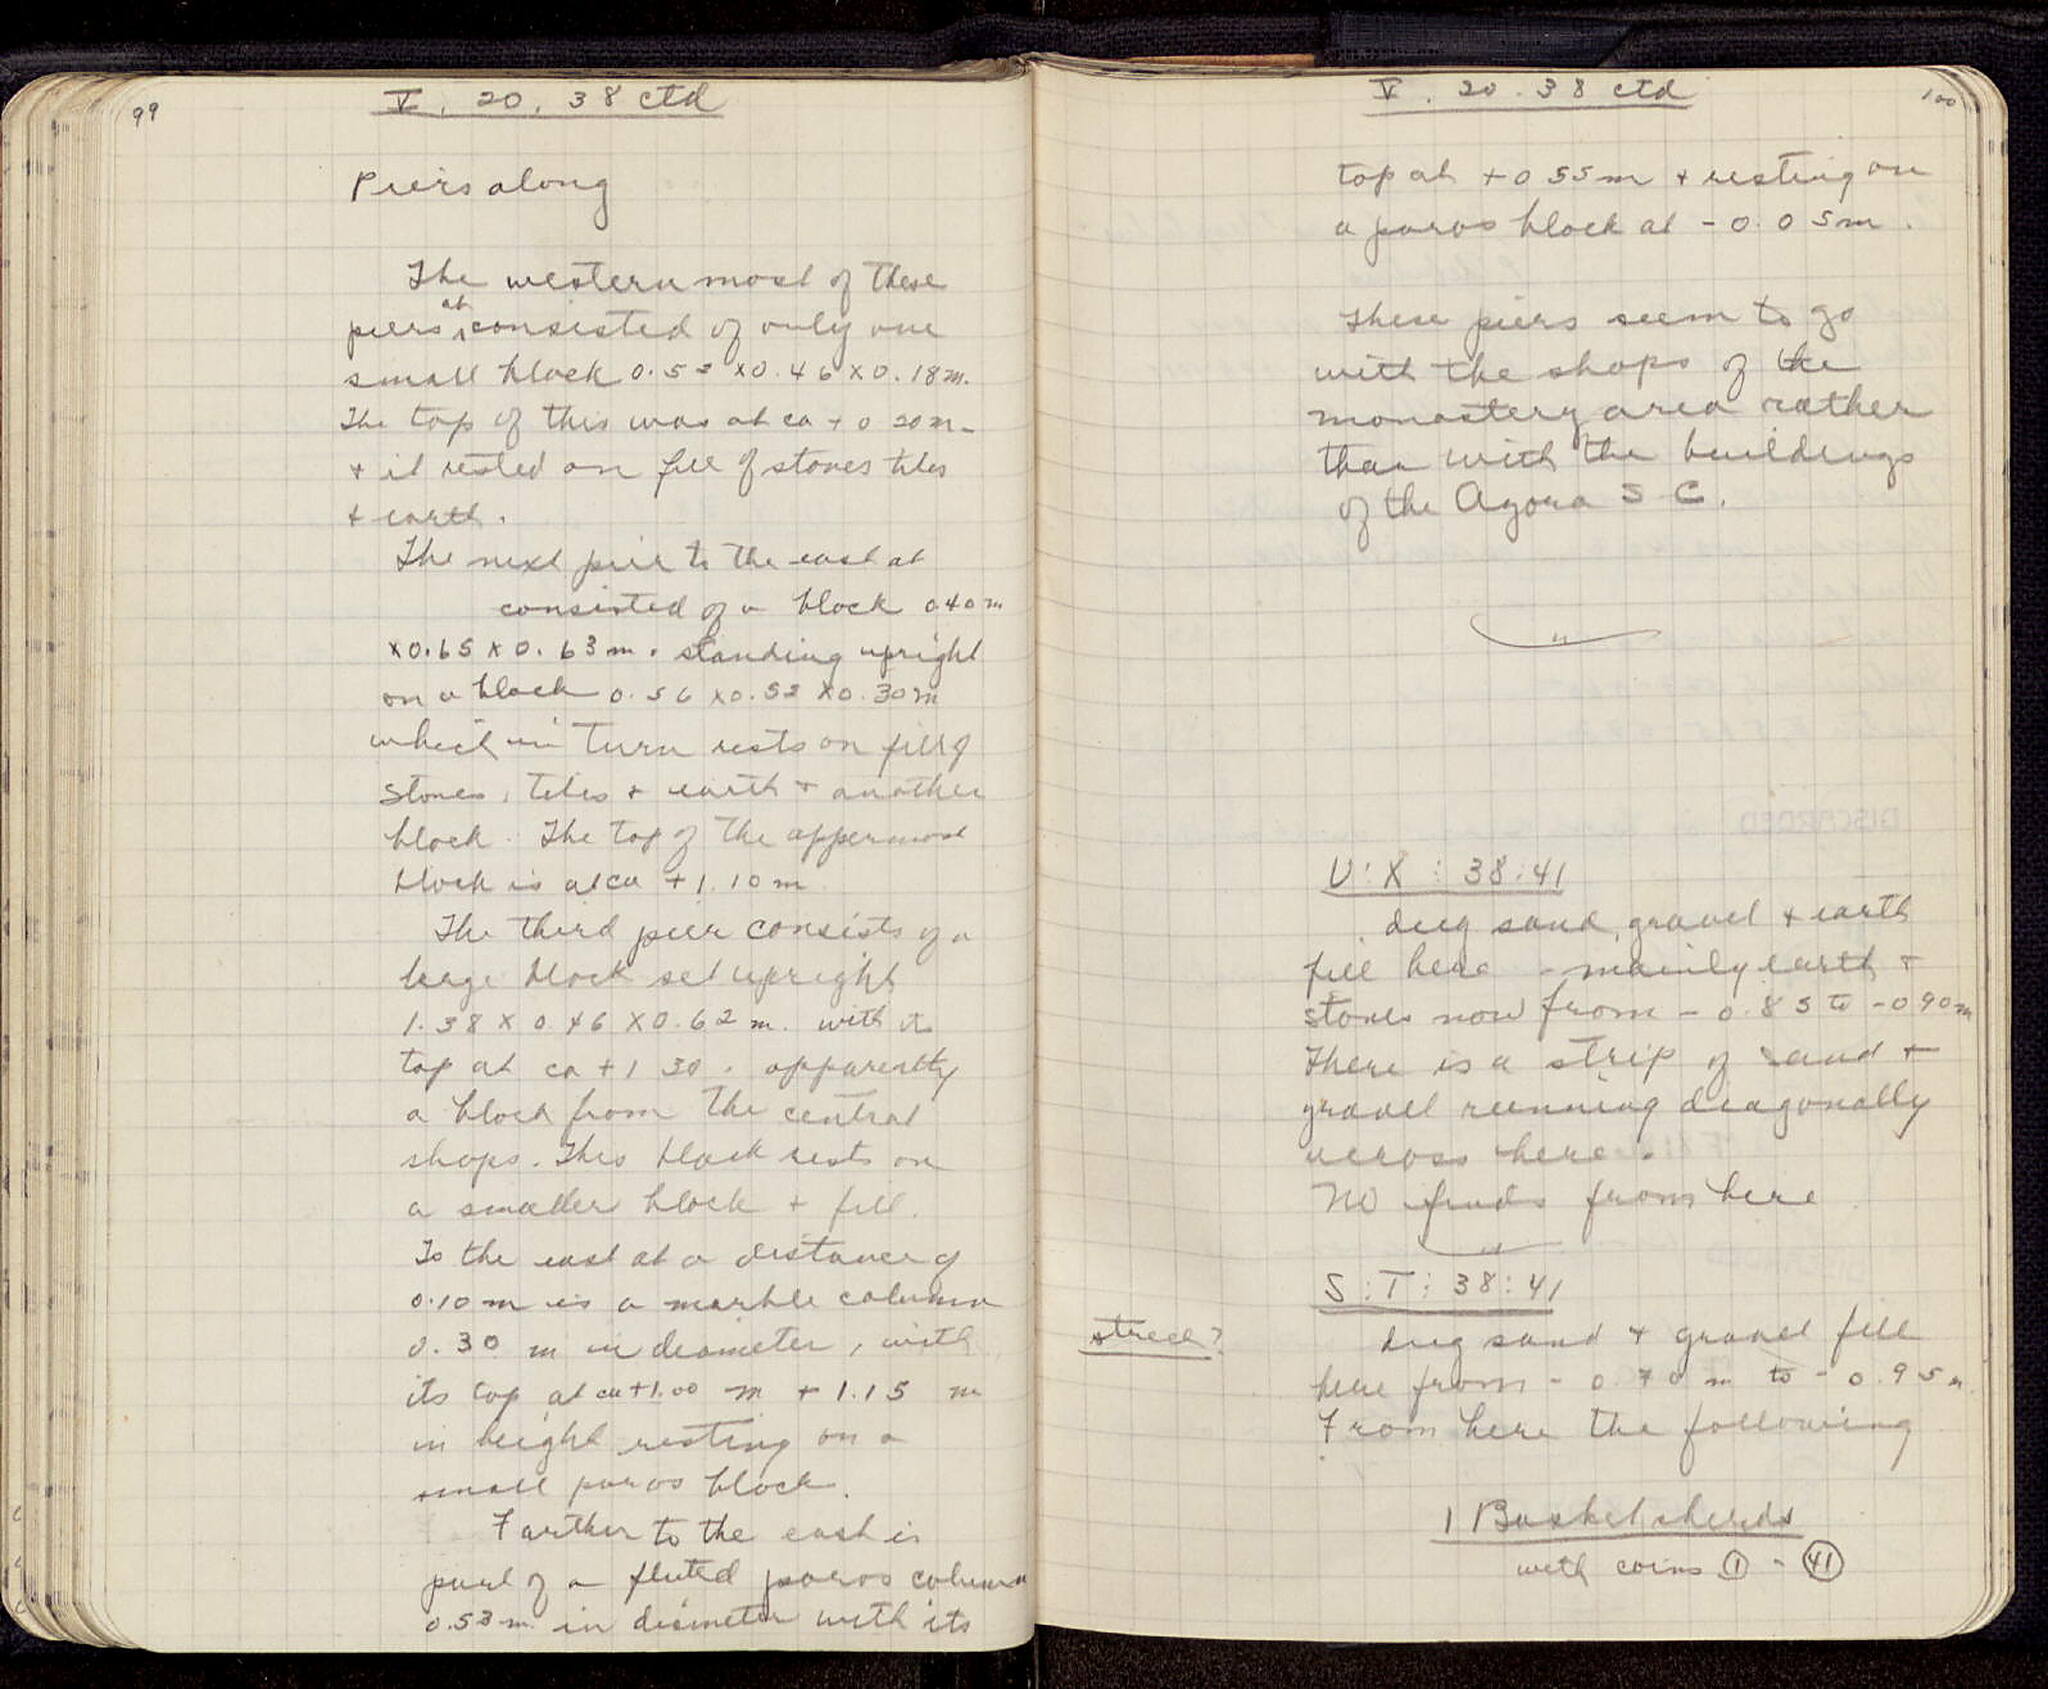 99
V. 20. 38 ctd
Piers along
The western most of these
at
piers consisted of only one
small block 0.52 x 0.46 x 0.18 m.
The top of this was at ca + 0 20 m -
+ it rested on fill of stones tiles
+ earth.
The next pier to the east at
consisted of a block 0.40 m
x 0.65 x 0.63 m. standing upright
on a block 0.56 x 0.52 x 0.30 m
which in turn rests on fill of
stones, tiles + earth + another
block. The top of the uppermost
block is at ca + 1.10 m
The third pier consists of a
large block set upright
1.38 x 0.46 x 0.62 m. with its
top at ca + 1 30. apparently
a block from the central
shops. This block rests on
a smaller block + fill.
To the east at a distance of
0.10 m is a marble column
0.30 m in diameter, with
its top at ca + 1.00 m + 1.15 m
in height resting on a
small poros block.
Farther to the east is
part of a fluted poros column
0.53 m in diameter with its
V. 20. 38 ctd
100
top at + 0 55 m + resting on
a poros block at - 0.05 m.
These piers seem to go
with the shops of the
monastery area rather
than with the buildings
of the Agora S C.
U : X : 38 : 41
dug sand, gravel + earth
fill here - mainly earth +
stones now from - 0.85 to - 0 90 m
There is a strip of sand +
gravel running diagonally
across here.
No finds from here
S : T : 38 : 41
street?
dug sand + gravel fill
here from - 0.70 m to - 0.95 m
From here the following
1 Basket sherds
with coins 1 - 41